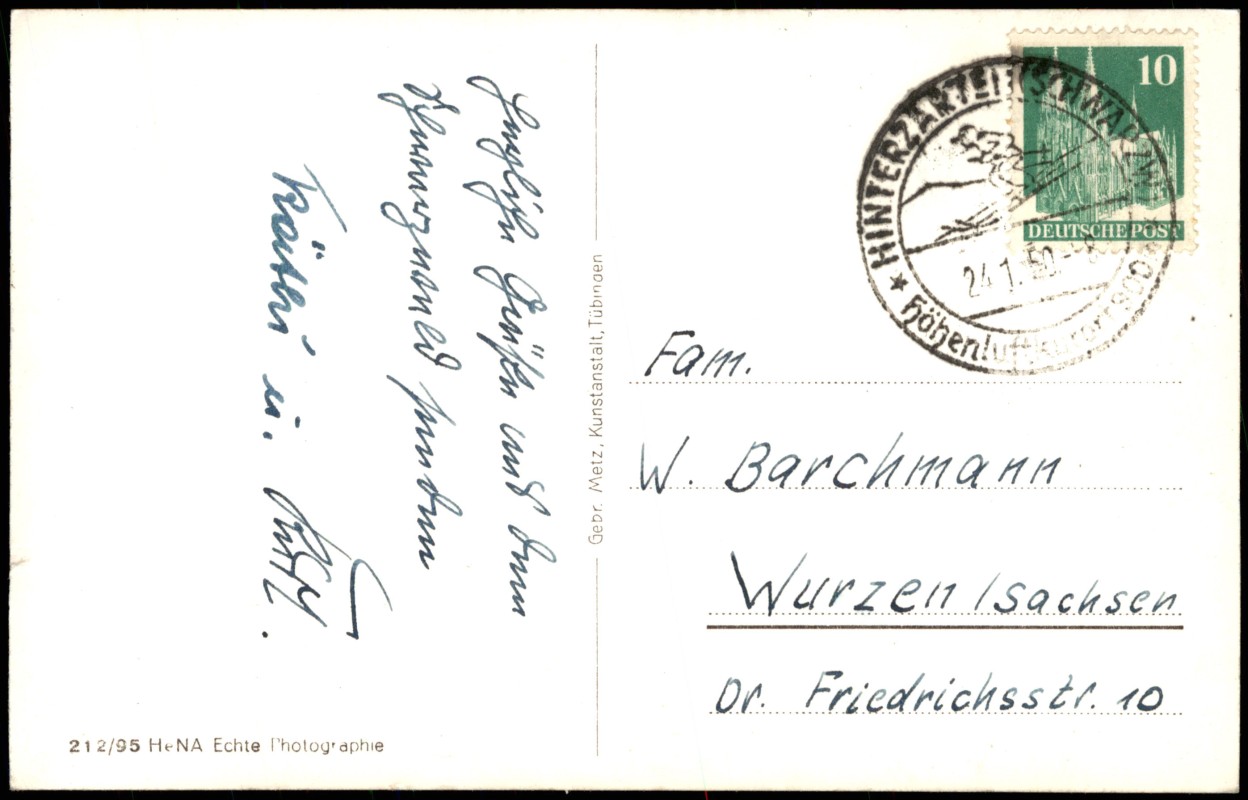 Herzliche Grüße aus dem
Schwarzwald senden
Käthi u.
Gebr. Metz, Kunstanstalt, Tübingen
10
DEUTSCHE POST
HINTERZARTEN (SCHWARZW.)
24.1.50.-8
Höhenluftkurort 900
Fam.
W. Barchmann
Wurzen/Sachsen
Dr. Friedrichsstr. 10
212/95 HeNA Echte Photographie